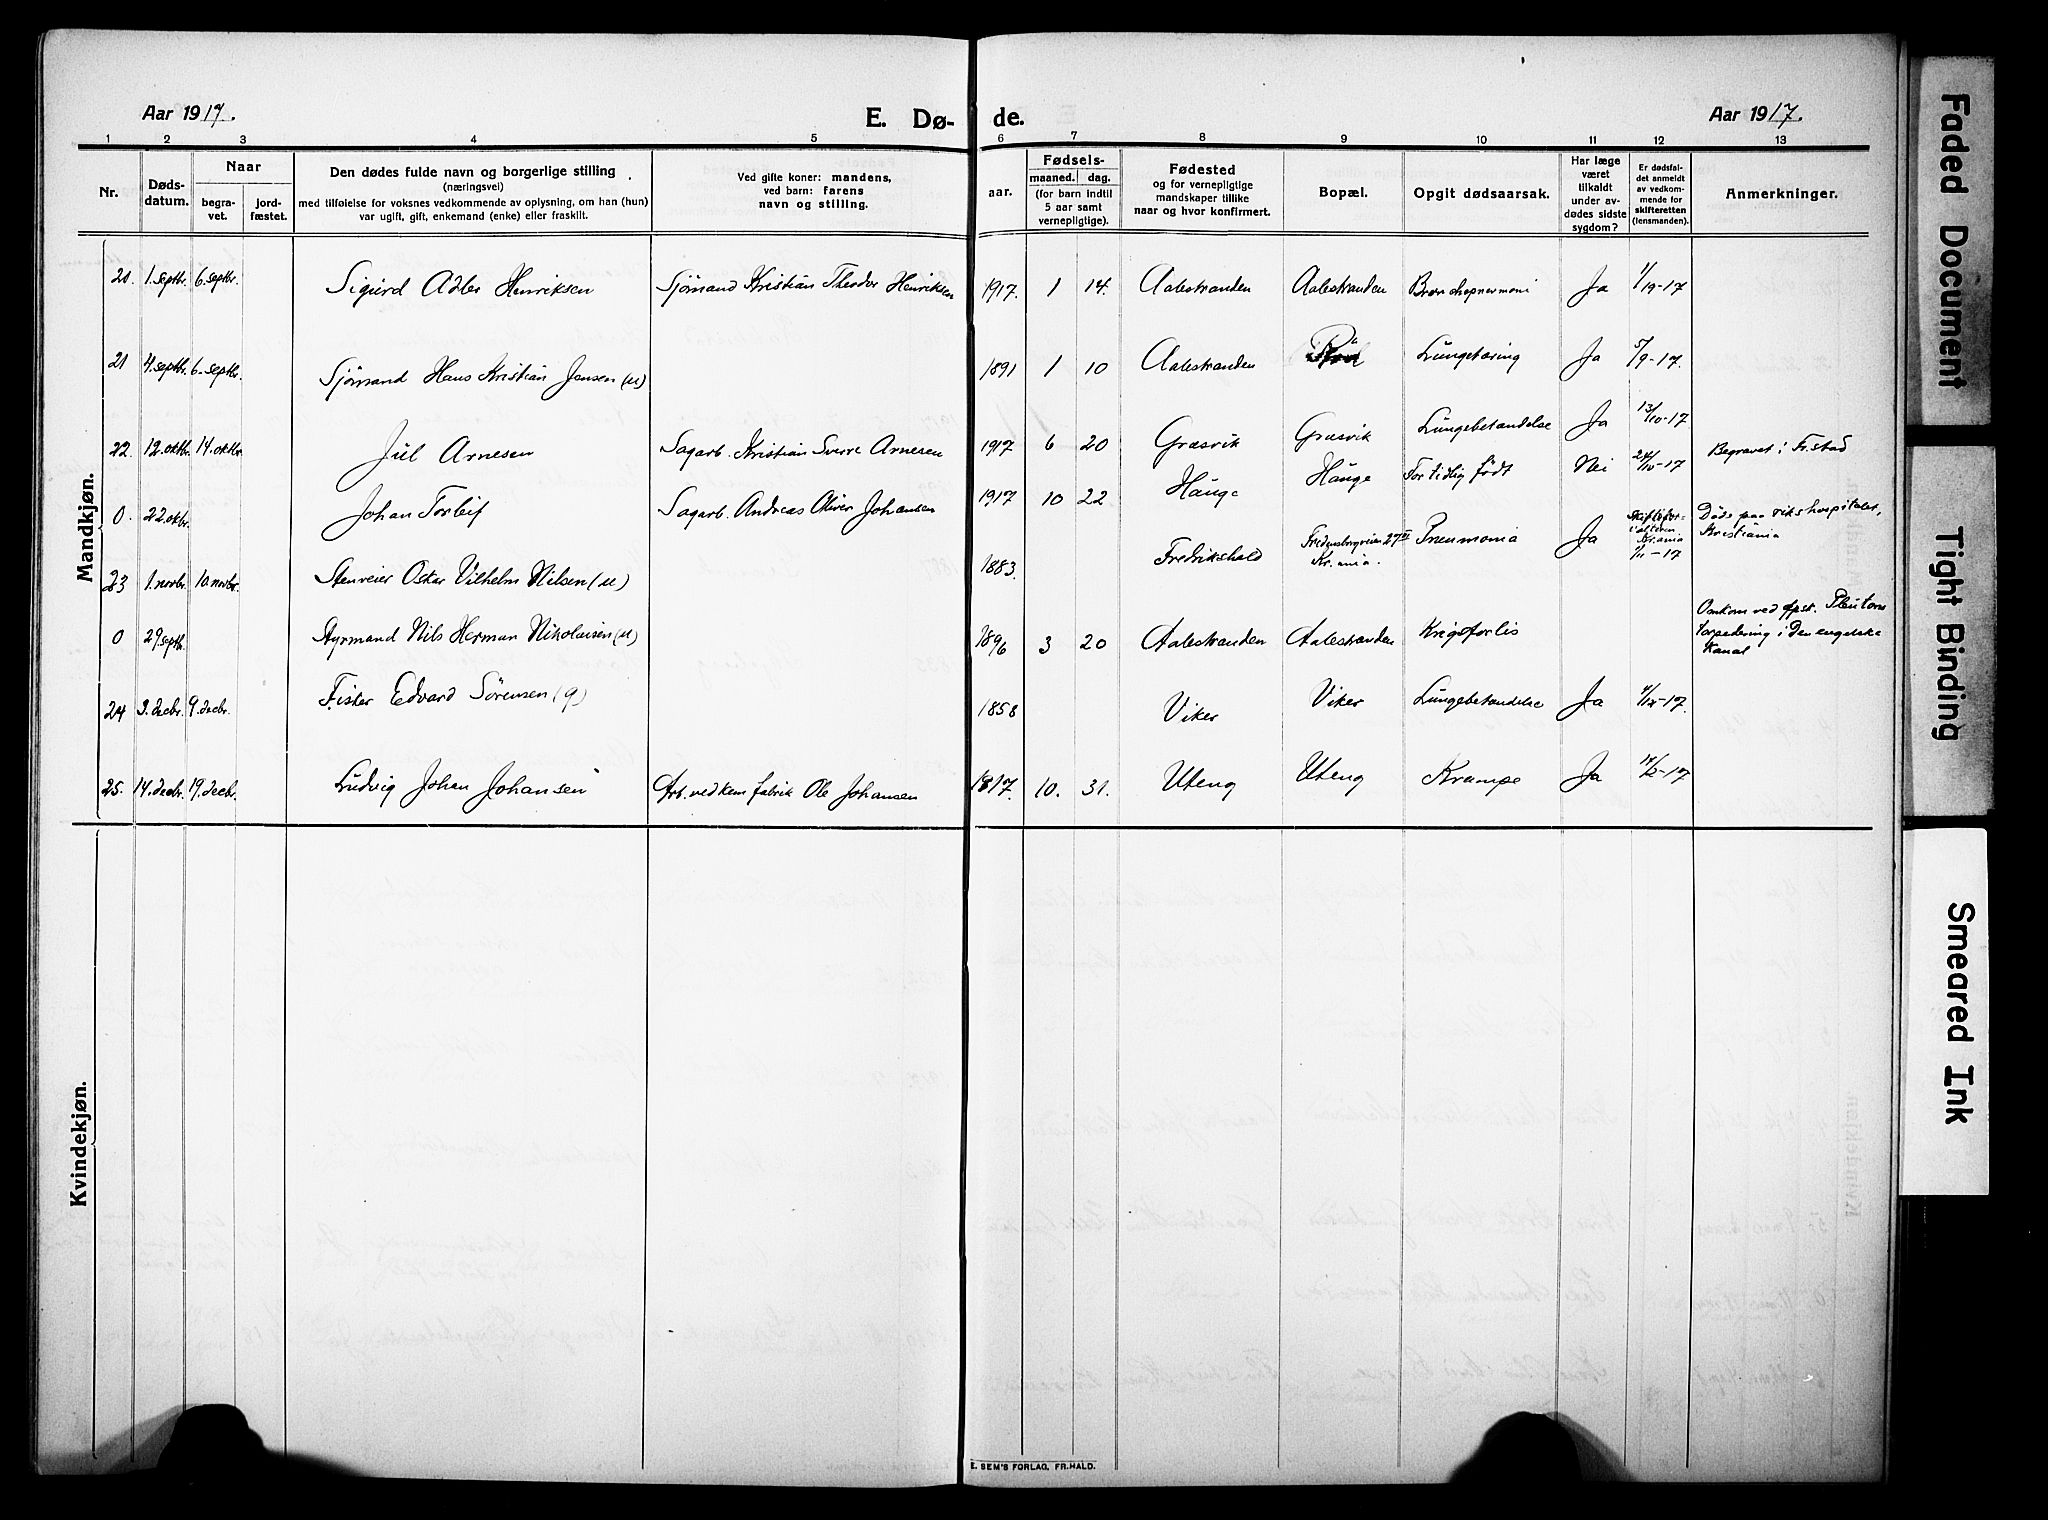 Aar 1917.
E. Dø-
de.
Aar 1917.
1 2 3 4 5 6 7 8 9 10 11 12 13
Nr.
Døds-
datum.
Naar
begra-
vet.
jord-
fæstet.
Den dødes fulde navn og borgerlige stilling
(næringsvei)
med tilføielse for voksnes vedkommende av oplysning, om han (hun)
var ugift, gift, enkemand (enke) eller fraskilt.
Ved gifte koner: mandens,
ved barn: farens
navn og stilling.
aar.
Fødsels-
maaned. dag.
(for barn indtil
5 aar samt
vernepligtige).
Fødested
og for vernepligtige
mandskaper tillike
naar og hvor konfirmert.
Bopæl.
Opgit dødsaarsak.
Har læge
været
tilkaldt
under av-
dødes sidste
sygdom?
Er dødsfal-
det anmeldt
av vedkom-
mende for
skifteretten
(lensmanden).
Anmerkninger.
Mandkjøn.
20. 1. septbr. 6. septbr. Sigurd Adler Henriksen Sjömand Kristian Theodor Henriksen 1917. 1 14. Aalestranden Aalestranden Bronchopnevmoni Ja 1/10-17
21 4. septbr. 6. septbr. Sjömand Hans Kristian Jensen (u) 1891 1 10 Aalestranden Lungetæring Ja 5/9-17.
22. 12. oktbr. 14. oktbr. Jul Arnesen Sagarb. Kristian Sverre Arnesen 1917 6 20 Græsvik Græsvik Lungebetændelse Ja 13/10-17 Begravet i Fr.stad
0. 22. okbr. Johan Torleif Sagarb. Andreas Oliver Johansen 1917 10 22 Hauge Hauge For tidlig født Nei 24/10-17
23 1. novbr. 10 novbr. Stenveier Oskar Vilhelm Nilsen (u) 1883. Fredrikshald Fredensborgveien 27 II
Kr.ania. Pneumonia Ja Skiftefor-
valteren
Kr.ania
1/11-17 Døde paa rikshospitalet,
Kristiania
0 29. septbr. Styrmand Nils Herman Nikolaisen (u) 1896 3 20 Aalestranden Aalestranden Krigsforlis Omkom ved dpsk. Plutons
torpedering i Den engelske
Kanal
24 3. decbr. 9. decbr. Fisker Edvard Sörensen (g) 1858 Viker Viker Lungebetændelse Ja 4/12-17.
25. 14. decbr. 19. decbr. Ludvig Johan Johansen Arb. ved kem fabrik Ole Johansen 1917. 10. 31. Uteng Uteng Krampe Ja 17/12-17
Kvindekjøn.
E. SEM'S FORLAG, FR.HALD.
Faded Document
Tight Binding
Smeared Ink